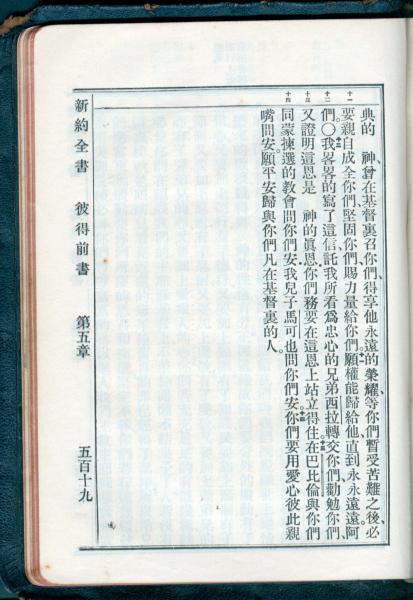 十一
十二
十三
十四
典的　神曾在基督裏召你們、得享他永遠的榮耀、等你們暫受苦難之後、必
要親自成全你們、堅固你們、賜力量給你們。十一願權能歸給他、直到永永遠遠、阿
們。○十二我畧畧的寫了這信、託我所看爲忠心的兄弟西拉轉交你們、勸勉你們、
又證明這恩是　神的眞恩、你們務要在這恩上站立得住。十三在巴比倫與你們
同蒙揀選的教會問你們安、我兒子馬可也問你們安。十四你們要用愛心彼此親
嘴問安。願平安歸與你們凡在基督裏的人。
新約全書　彼得前書　第五章　五百十九